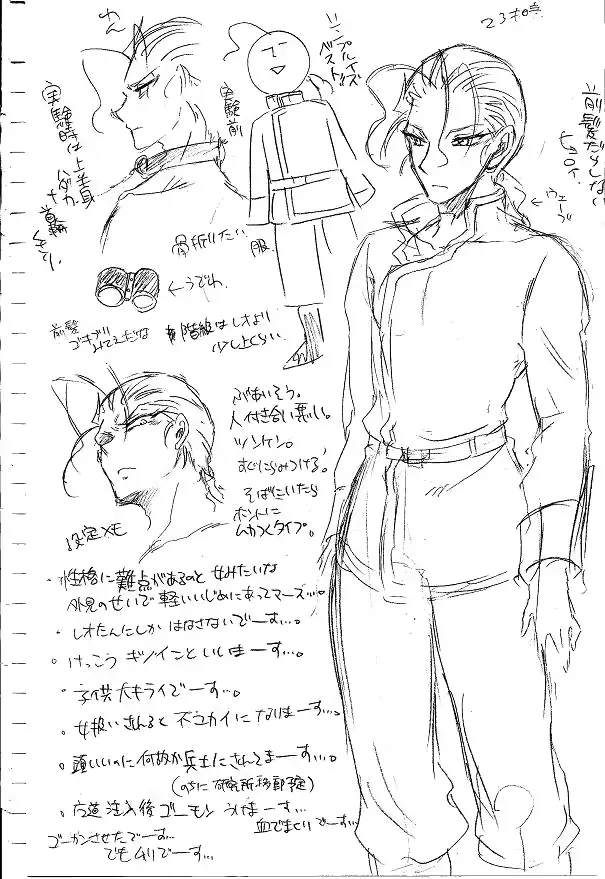 23才時点
わん
シンプルイズ
ベスト
実験前
実験時は上半身
ハダカ
首輪
服
←うでわ
前髪だらしない
ウェーブ
前髪
ゴキブリみてえだな
階級はレオより
少し上くらい
ぶあいそう。
人付き合い悪い。
ツンケン。
すぐにらみつける。
そばにいたら
ホントに
ムカつくタイプ。
設定メモ
・性格に難点があるのと女みたいな
外見のせいで軽いいじめにあってマース…。
・レオたんにしかはなさないでーす…。
・けっこうキツイこといいまーす…。
・子供大キライでーす…。
・女扱いされるとフユカイになりまーす…。
・頭いいのに何故か兵士にされてまーす…。
(のちに研究所移動予定)
注入後ゴーモンうけまーす…
血でまくりでーす…
ゴーカンさせたでーす…
でもムリでーす…